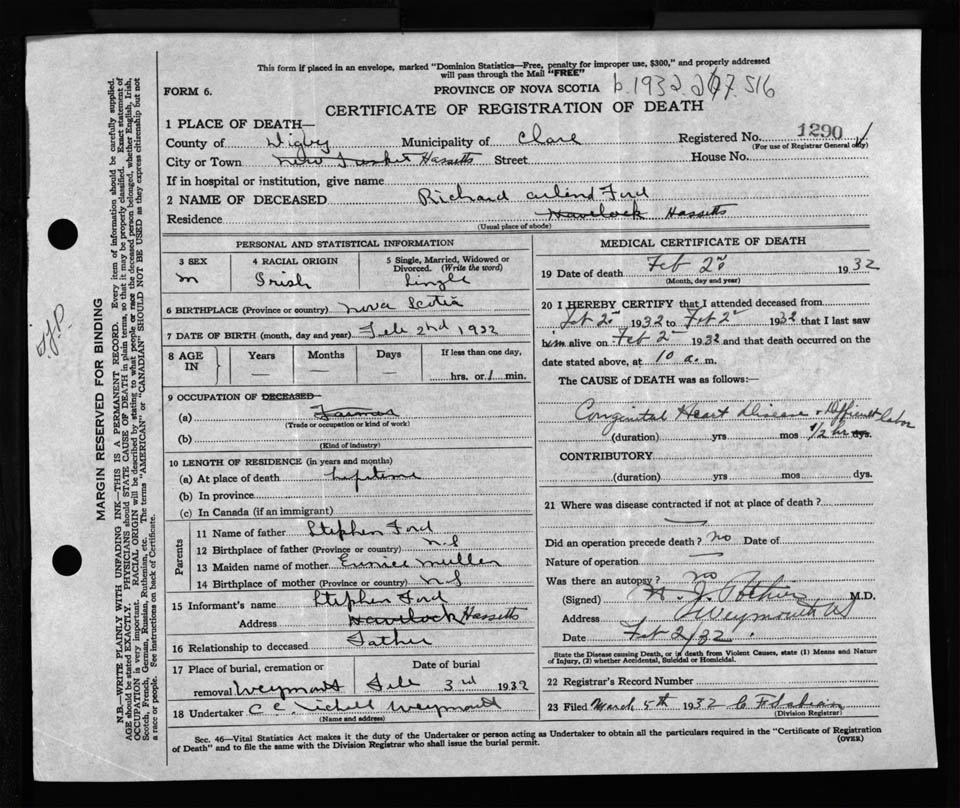 This form if placed in an envelope, marked "Dominion Statistics—Free, penalty for improper use, $300," and properly addressed
will pass through the Mail "FREE"
FORM 6.
PROVINCE OF NOVA SCOTIA b.1932.
CERTIFICATE OF REGISTRATION OF DEATH
1 PLACE OF DEATH—
County of Digby Municipality of Clare Registered No. 1290
(For use of Registrar General only)
City or Town New Tusket Hassetts Street House No.
If in hospital or institution, give name
2 NAME OF DECEASED Richard Ford
Residence Havelock Hassetts
(Usual place of abode)
PERSONAL AND STATISTICAL INFORMATION
3 SEX 4 RACIAL ORIGIN 5 Single, Married, Widowed or Divorced. (Write the word)
m Irish Single
6 BIRTHPLACE (Province or country) Nova Scotia
7 DATE OF BIRTH (month, day and year) Feb 2nd 1932
8 AGE IN Years Months Days If less than one day,
— — — hrs. or 1 min.
9 OCCUPATION OF DECEASED
(a) Farmer
(Trade or occupation or kind of work)
(b)
(Kind of industry)
10 LENGTH OF RESIDENCE (in years and months)
(a) At place of death lifetime
(b) In province
(c) In Canada (if an immigrant)
Parents
11 Name of father Stephen Ford
12 Birthplace of father (Province or country) N.S
13 Maiden name of mother Eunice Mullen
14 Birthplace of mother (Province or country) N S
15 Informant's name Stephen Ford
Address Havelock Hassetts
16 Relationship to deceased Father
17 Place of burial, cremation or Date of burial
removal Weymouth Feb 3rd 1932
18 Undertaker C C Weymouth
(Name and address)
MEDICAL CERTIFICATE OF DEATH
19 Date of death Feb 2 1932
(Month, day and year)
20 I HEREBY CERTIFY that I attended deceased from
Feb 2 1932 to Feb 2 1932 that I last saw
him alive on Feb 2 1932 and that death occurred on the
date stated above, at 10 a. m.
The CAUSE OF DEATH was as follows:—
Congenital Heart Disease & Difficult labor
(duration) yrs mos 1/2 hr dys.
CONTRIBUTORY
(duration) yrs mos. dys.
21 Where was disease contracted if not at place of death?
—
Did an operation precede death? no Date of
Nature of operation —
Was there an autopsy? no
(Signed) Pothier M.D.
Address Weymouth NS
Date Feb 2/32
State the Disease causing Death, or in death from Violent Causes, state (1) Means and Nature
of Injury, (2) whether Accidental, Suicidal or Homicidal.
22 Registrar's Record Number
23 Filed March 5th 1932
(Division Registrar)
Sec. 46—Vital Statistics Act makes it the duty of the Undertaker or person acting as Undertaker to obtain all the particulars required in the "Certificate of Registration
of Death" and to file the same with the Division Registrar who shall issue the burial permit. (OVER)
MARGIN RESERVED FOR BINDING
N.B.—WRITE PLAINLY WITH UNFADING INK—THIS IS A PERMANENT RECORD. Every item of information should be carefully supplied.
AGE should be stated EXACTLY. PHYSICIANS should STATE CAUSE OF DEATH in plain terms, so that it may be properly classified. Exact statement of
OCCUPATION is very important. RACIAL ORIGIN will be described by stating to what people or race the deceased person belonged, whether English, Irish,
Scotch, French, German, Russian, Ruthenian, etc. The terms "AMERICAN" or "CANADIAN" SHOULD NOT BE USED as they express citizenship but not
a race or people. See instructions on back of Certificate.